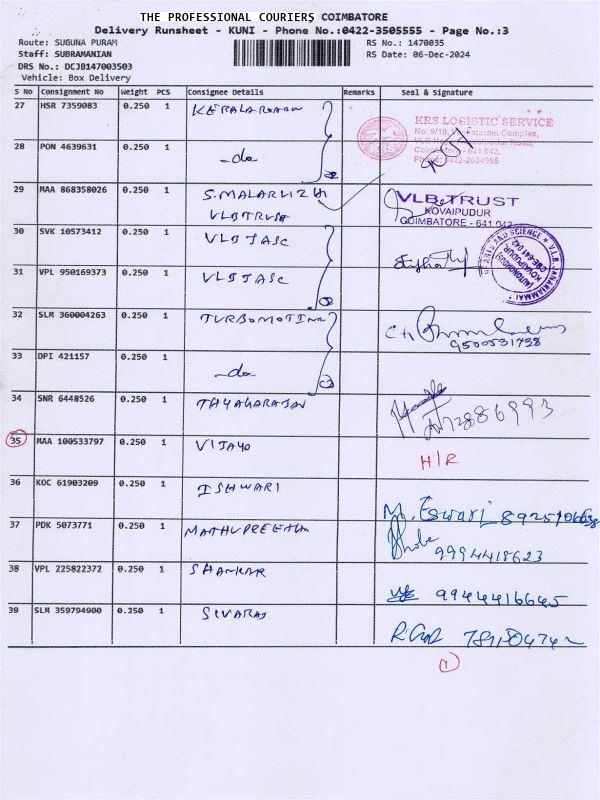 THE PROFESSIONAL COURIERS COIMBATORE
Delivery Runsheet - KUNI - Phone No.:0422-3505555 - Page No.:3
Route: SUGUNA PURAM
RS No.: 1470035
Staff: SUBRAMANIAN
RS Date: 06-Dec-2024
DRS No.: DCJB147003503
Vehicle: Box Delivery
S No Consignment No Weight PCS Consignee Details Remarks Seal & Signature
27 HSR 7359083 0.250 1
KRS LOGISTIC SERVICE
28 PON 4639631 0.250 1 -do-
29 MAA 868358026 0.250 1 S.MALARVIZHI
VLB TRUST
VLB TRUST
KOVAIPUDUR
COIMBATORE - 641 042
30 SVK 10573412 0.250 1 VLBJASC
31 VPL 950169373 0.250 1 VLBJASC
32 SLM 360004263 0.250 1
9500531798
33 DPI 421157 0.250 1 -do-
34 SNR 6448526 0.250 1 THYAGARAJAN
35 MAA 100533797 0.250 1 VIJAYO
H/R
36 KOC 61903209 0.250 1 ISHWARI
M. Eswari
37 PDK 5073771 0.250 1 MATHUPREETHA
9994418623
38 VPL 225822372 0.250 1 SHANKAR
9944416645
39 SLM 359794900 0.250 1 SIVARAJ
1